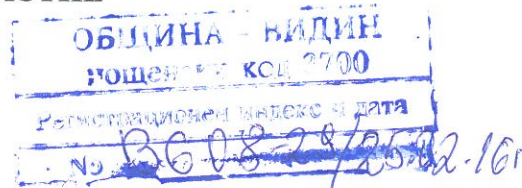 ОБЩИНА - ВИДИН
пощенски код 3700
Регистрационен индекс и дата
№ В608-29/25.02.16г